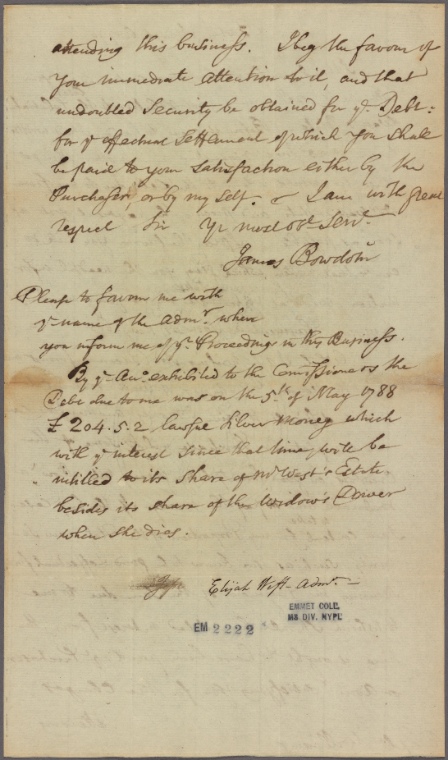 attending this business. I beg the favour of
your immediate attention to it, and that
undoubted Security be obtained for yͤ Debt:
for yͤ effectual Settlement of which you shall
be paid to your satisfaction either by the
Purchaser, or by my self. I am with great
respect Sir Yr most obt Servt
James Bowdoin
Please to favour me with
yͤ name of the Admr. when
you inform me of yr. Proceedings in this Business.
By yͤ Acct. exhibited to the Comissioners the
Debt due to me was on the 5th of May 1788
£204.5.2 lawful Silver Money which
with yͤ interest since that time, will be
intitled to its share of Mr West's Estate
besides its share of the Widow's Dower
when she dies.
Elijah West Admr.
EMMET COLL.
MS DIV. NYPL
EM 2222